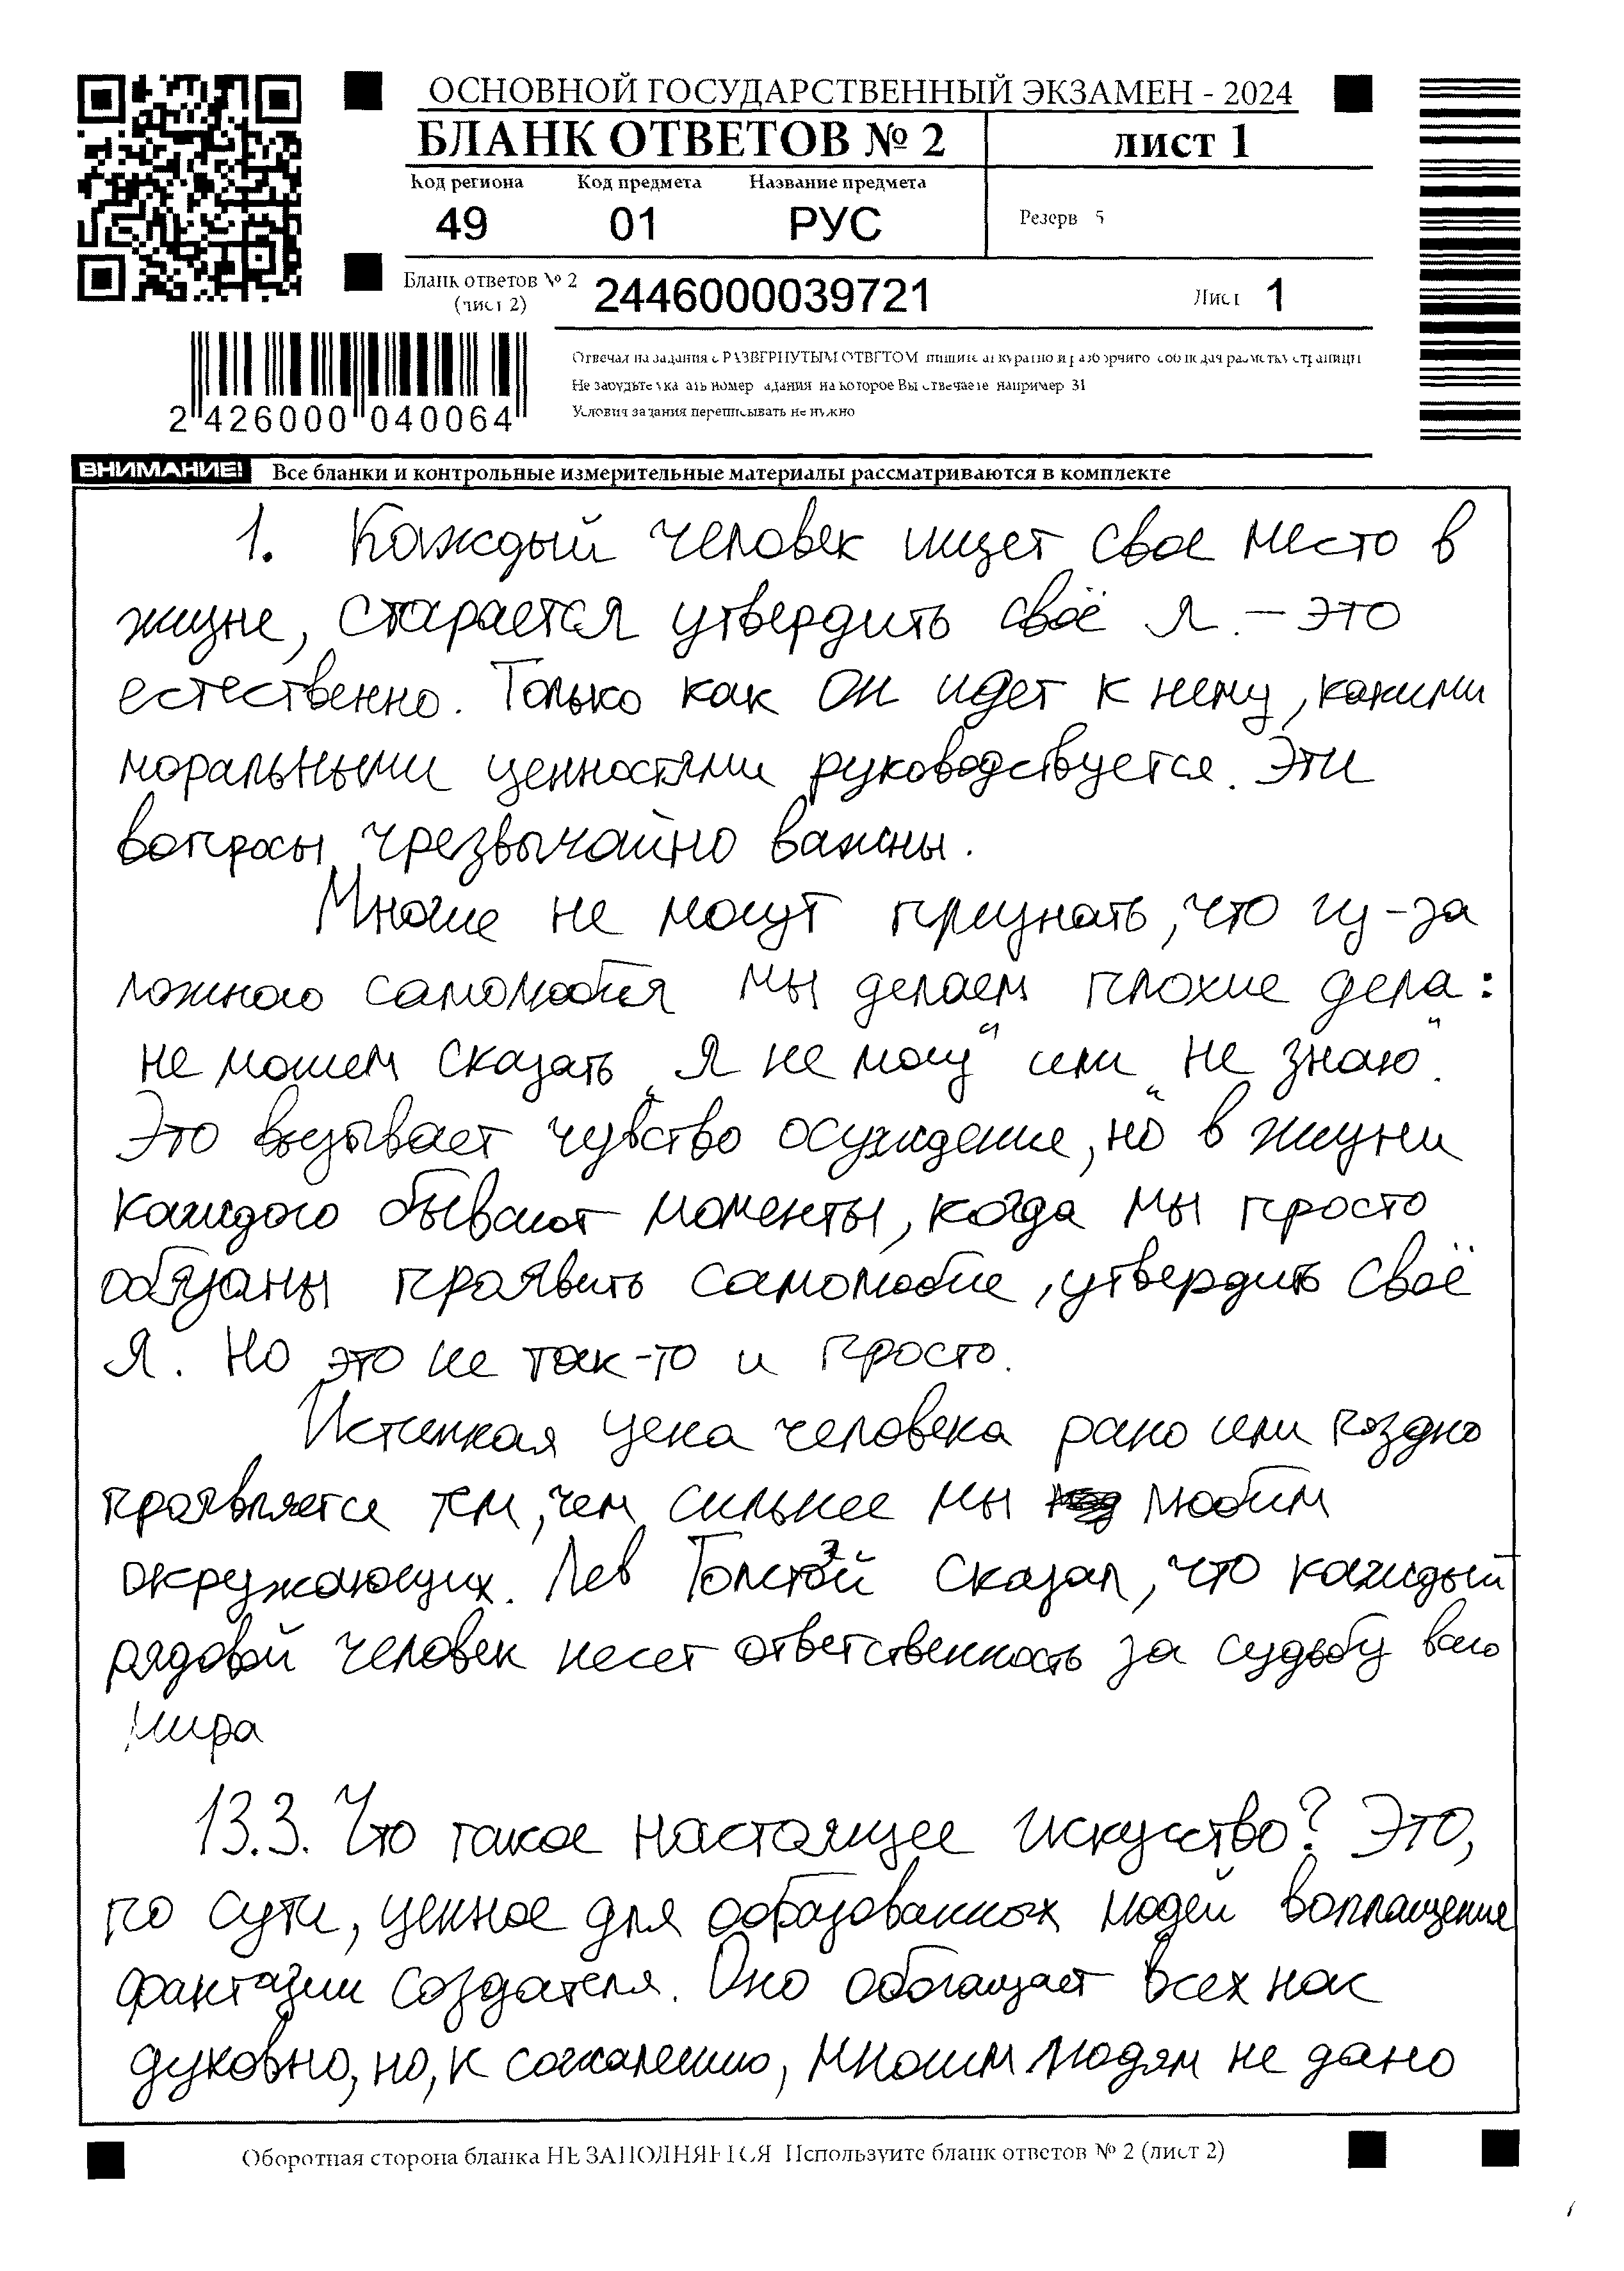 ОСНОВНОЙ ГОСУДАРСТВЕННЫЙ ЭКЗАМЕН - 2024
БЛАНК ОТВЕТОВ № 2
ЛИСТ 1
Код региона
Код предмета
Название предмета
49
01
РУС
Резерв 5
Бланк ответов № 2
(лист 2)
2446000039721
Лист 1
Отвечая на задания с РАЗВЕРНУТЫМ ОТВЕТОМ пишите аккуратно и разборчиво соблюдая разметку страницы
Не забудьте указать номер задания на которое Вы отвечаете например 31
Условия задания переписывать не нужно
2 426000 040064
ВНИМАНИЕ! Все бланки и контрольные измерительные материалы рассматриваются в комплекте
1. Каждый человек ищет свое место в
жизне, старается утвердить своё Я. – это
естественно. Только как он идет к нему, какими
моральными ценностями руководствуется. Эти
вопросы чрезвычайно важны.
Многие не могут признать, что из-за
ложного самолюбия мы делаем плохие дела:
не можем сказать „Я не могу“ или „не знаю“.
Это вызывает чувство осуждение, но в жизни
каждого бывают моменты, когда мы просто
обязаны проявить самолюбие, утвердить своё
Я. Но это не так-то и просто.
Истинная цена человека рано или поздно
проявляется тем, чем сильнее мы любим
окружающих. Лев Толстой сказал, что каждый
рядовой человек несет ответственность за судьбу всего
мира
13.3. Что такое настоящее искусство? Это,
по сути, ценное для образованных людей воплащение
фантазии создателя. Оно обогащает всех нас
духовно, но, к сожалению, многим людям не дано
Оборотная сторона бланка НЕ ЗАПОЛНЯЕТСЯ Используйте бланк ответов № 2 (лист 2)